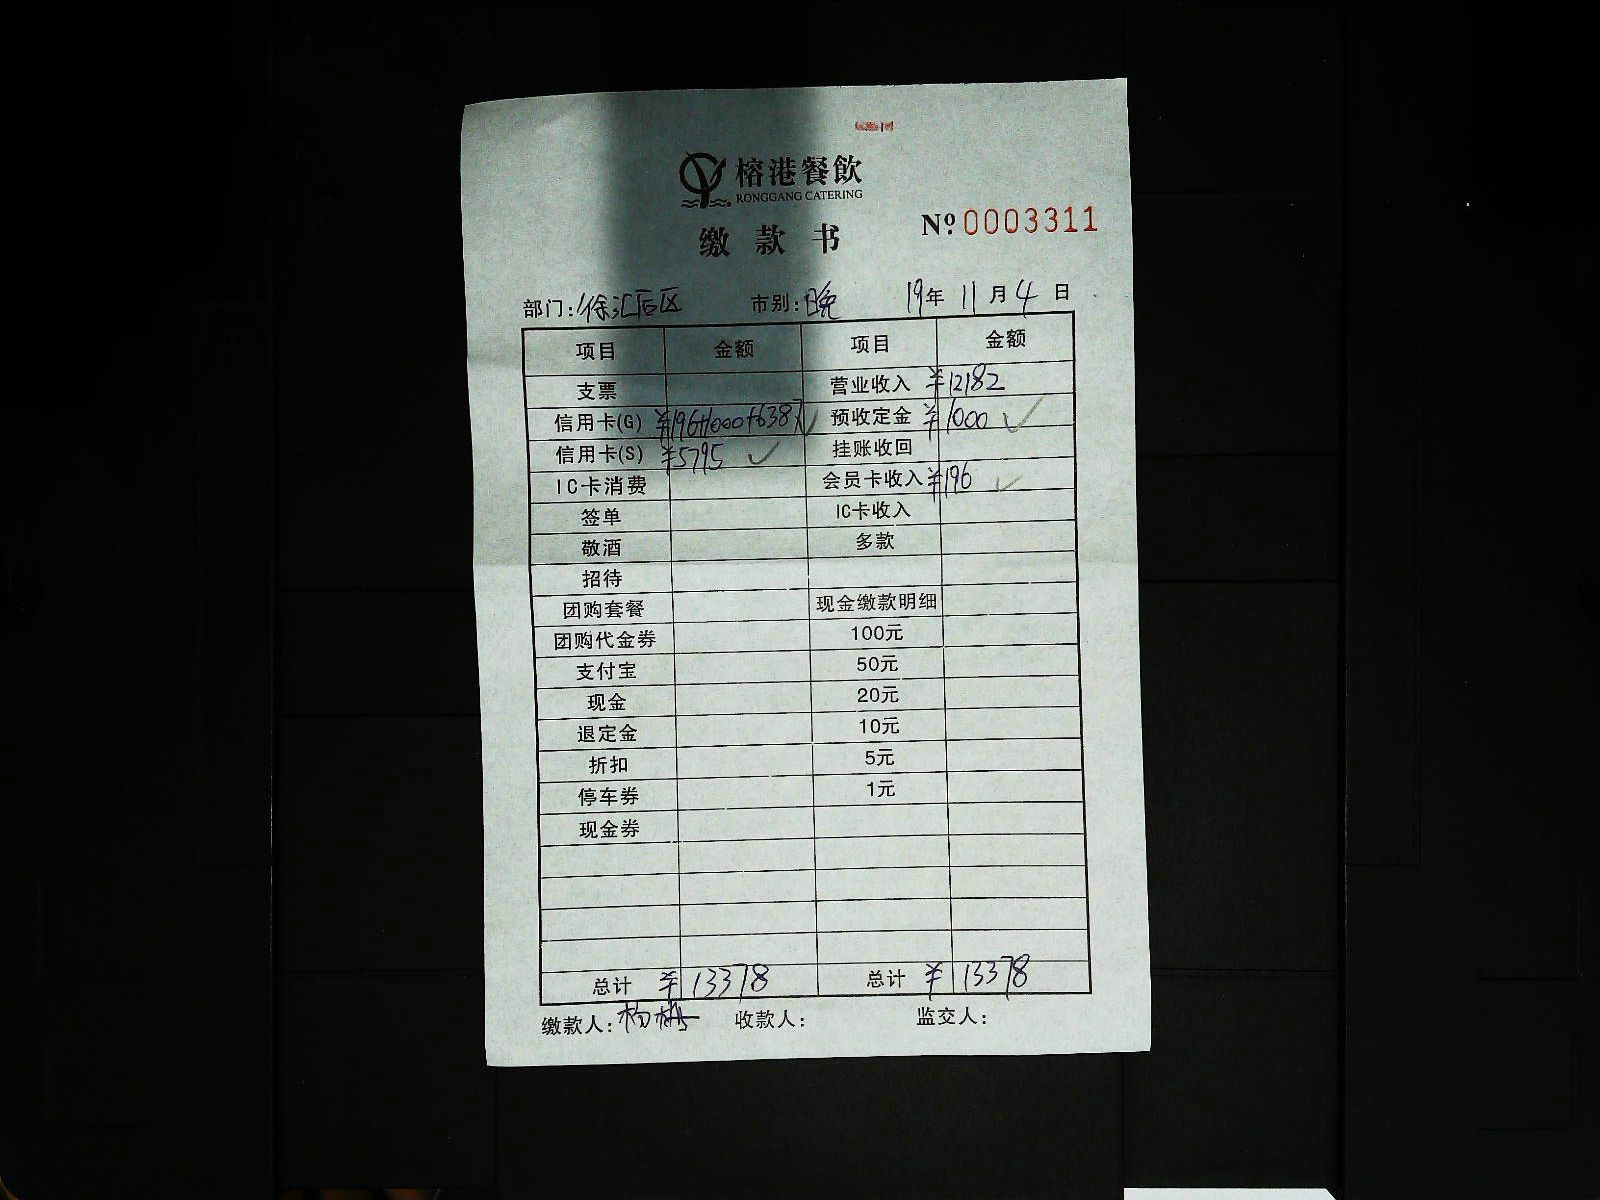 榕港餐飲
RONGGANG CATERING
缴款书 №0003311
部门:徐汇后区 市别:晚 19年11月4日
项目 金额 项目 金额
支票 营业收入 ¥12182
信用卡(G) ¥196+1000+6387 预收定金 ¥1000 ✓
信用卡(S) ¥5795 ✓ 挂账收回
IC卡消费 会员卡收入 ¥196 ✓
签单 IC卡收入
敬酒 多款
招待
团购套餐 现金缴款明细
团购代金券 100元
支付宝 50元
现金 20元
退定金 10元
折扣 5元
停车券 1元
现金券
总计 ¥13378 总计 ¥13378
缴款人:杨 收款人: 监交人: